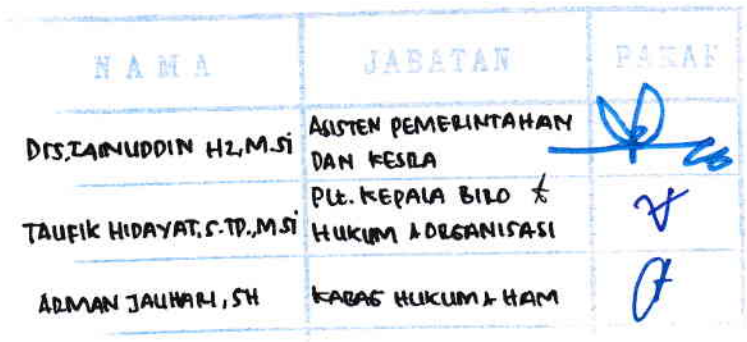 NAMA JABATAN PARAF
Drs. ZAINUDDIN HZ, M.Si ASISTEN PEMERINTAHAN
DAN KESRA
TAUFIK HIDAYAT, S.TP., M.Si PLt. KEPALA BIRO
HUKUM & ORGANISASI
ARMAN JAUHARI, SH KABAG HUKUM & HAM